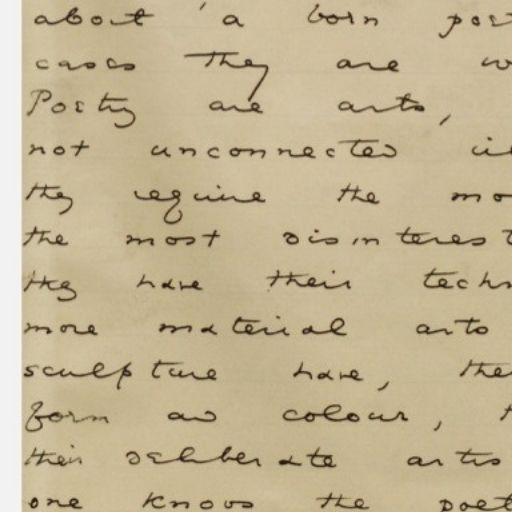 about ' a born poet
cases they are w
Poetry are arts,
not unconnected wi
they require the mo
the most disinterest
they have their techn
more material arts
sculpture have, thei
form and colour, t
their deliberate artis
one knows the poet